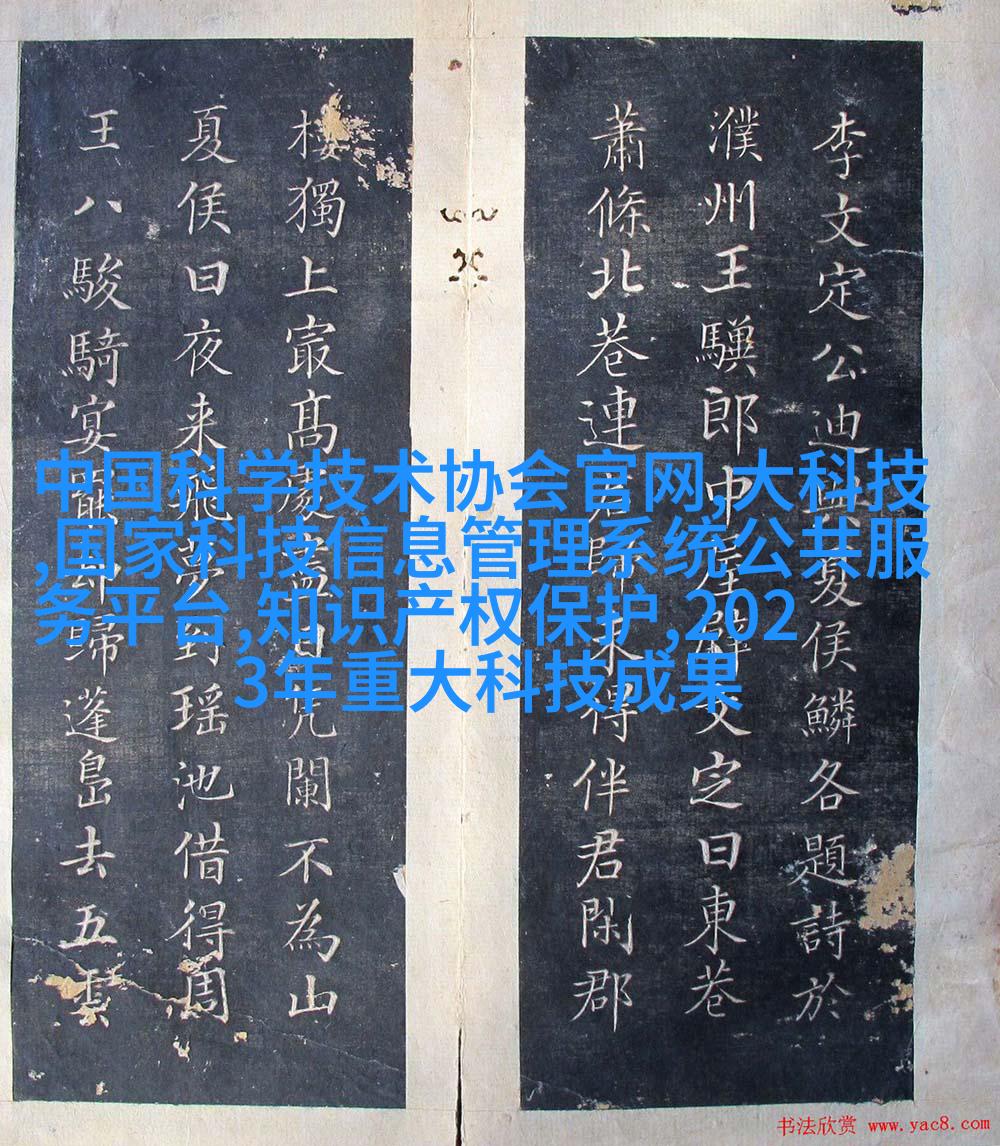 李文定公迪與夏侯鱗各題詩於
濮州王郎中屋壁文定曰東巷
蕭條北巷連君得伴君閑郡
樓獨上最高處盡日凭闌不為山
夏侯曰夜来飛夢到瑶池借得周
王八駿騎宴罷却歸蓬島去五雲
中国科学技术协会官网,大科技
,国家科技信息管理系统公共服
务平台,知识产权保护,202
3年重大科技成果
书法欣赏 www.yac8.com